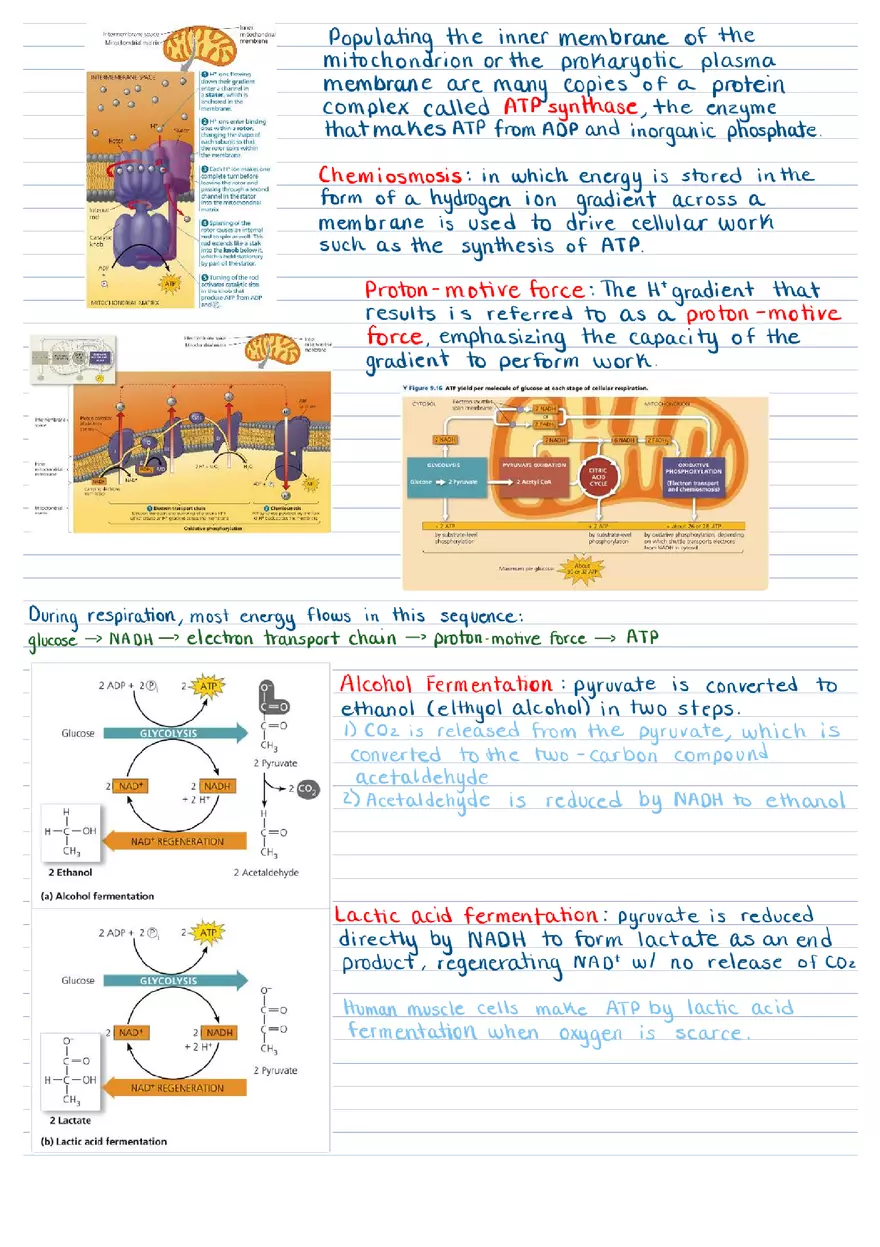 Intermembrane space
Mitochondrial matrix
Inner
mitochondrial
membrane
INTERMEMBRANE SPACE
1 H+ ions flowing
down their gradient
enter a channel in
a stator, which is
anchored in the
membrane.
2 H+ ions enter binding
sites within a rotor,
changing the shape of
each subunit so that
the rotor spins within
the membrane.
3 Each H+ ion makes one
complete turn before
leaving the rotor and
passing through a second
channel in the stator
into the mitochondrial
matrix.
4 Spinning of the
rotor causes an internal
rod to spin as well. This
rod extends like a stalk
into the knob below it,
which is held stationary
by part of the stator.
5 Turning of the rod
activates catalytic sites
in the knob that
produce ATP from ADP
and Pi.
H+
Stator
Rotor
Internal
rod
Catalytic
knob
ADP
+
Pi
ATP
MITOCHONDRIAL MATRIX
Populating the inner membrane of the
mitochondrion or the prokaryotic plasma
membrane are many copies of a protein
complex called ATP synthase, the enzyme
that makes ATP from ADP and inorganic phosphate.
Chemiosmosis: in which energy is stored in the
form of a hydrogen ion gradient across a
membrane is used to drive cellular work
such as the synthesis of ATP.
Proton-motive force: The H+ gradient that
results is referred to as a proton-motive
force, emphasizing the capacity of the
gradient to perform work.
Intermembrane space
Mitochondrial matrix
Inner
mitochondrial
membrane
Inter membrane
space
Inner
mitochondrial
membrane
Mitochondrial
matrix
1 Electron transport chain
2 Chemiosmosis
Oxidative phosphorylation
Figure 9.16 ATP yield per molecule of glucose at each stage of cellular respiration.
CYTOSOL
Electron shuttles
span membrane
MITOCHONDRION
2 NADH
or
2 FADH2
2 NADH
2 NADH
6 NADH
2 FADH2
GLYCOLYSIS
Glucose → 2 Pyruvate
PYRUVATE OXIDATION
2 Acetyl CoA
CITRIC
ACID
CYCLE
OXIDATIVE
PHOSPHORYLATION
(Electron transport
and chemiosmosis)
+ 2 ATP
by substrate-level
phosphorylation
+ 2 ATP
by substrate-level
phosphorylation
+ about 26 or 28 ATP
by oxidative phosphorylation, depending
on which shuttle transports electrons
from NADH in cytosol
Maximum per glucose:
About
30 or 32 ATP
During respiration, most energy flows in this sequence:
glucose → NADH → electron transport chain → proton-motive force → ATP
2 ADP + 2 Pi
2 ATP
Glucose
GLYCOLYSIS
O-
C=O
C=O
CH3
2 Pyruvate
2 NAD+
2 NADH
+ 2 H+
2 CO2
H
H-C-OH
CH3
NAD+ REGENERATION
H
C=O
CH3
2 Ethanol
2 Acetaldehyde
(a) Alcohol fermentation
Alcohol Fermentation: pyruvate is converted to
ethanol (elthyol alcohol) in two steps.
1) CO2 is released from the pyruvate, which is
converted to the two-carbon compound
acetaldehyde
2) Acetaldehyde is reduced by NADH to ethanol
2 ADP + 2 Pi
2 ATP
Glucose
GLYCOLYSIS
O-
C=O
C=O
CH3
2 Pyruvate
2 NAD+
2 NADH
+ 2 H+
O-
C=O
H-C-OH
CH3
NAD+ REGENERATION
2 Lactate
(b) Lactic acid fermentation
Lactic acid fermentation: pyruvate is reduced
directly by NADH to form lactate as an end
product, regenerating NAD+ w/ no release of CO2
Human muscle cells make ATP by lactic acid
fermentation when oxygen is scarce.